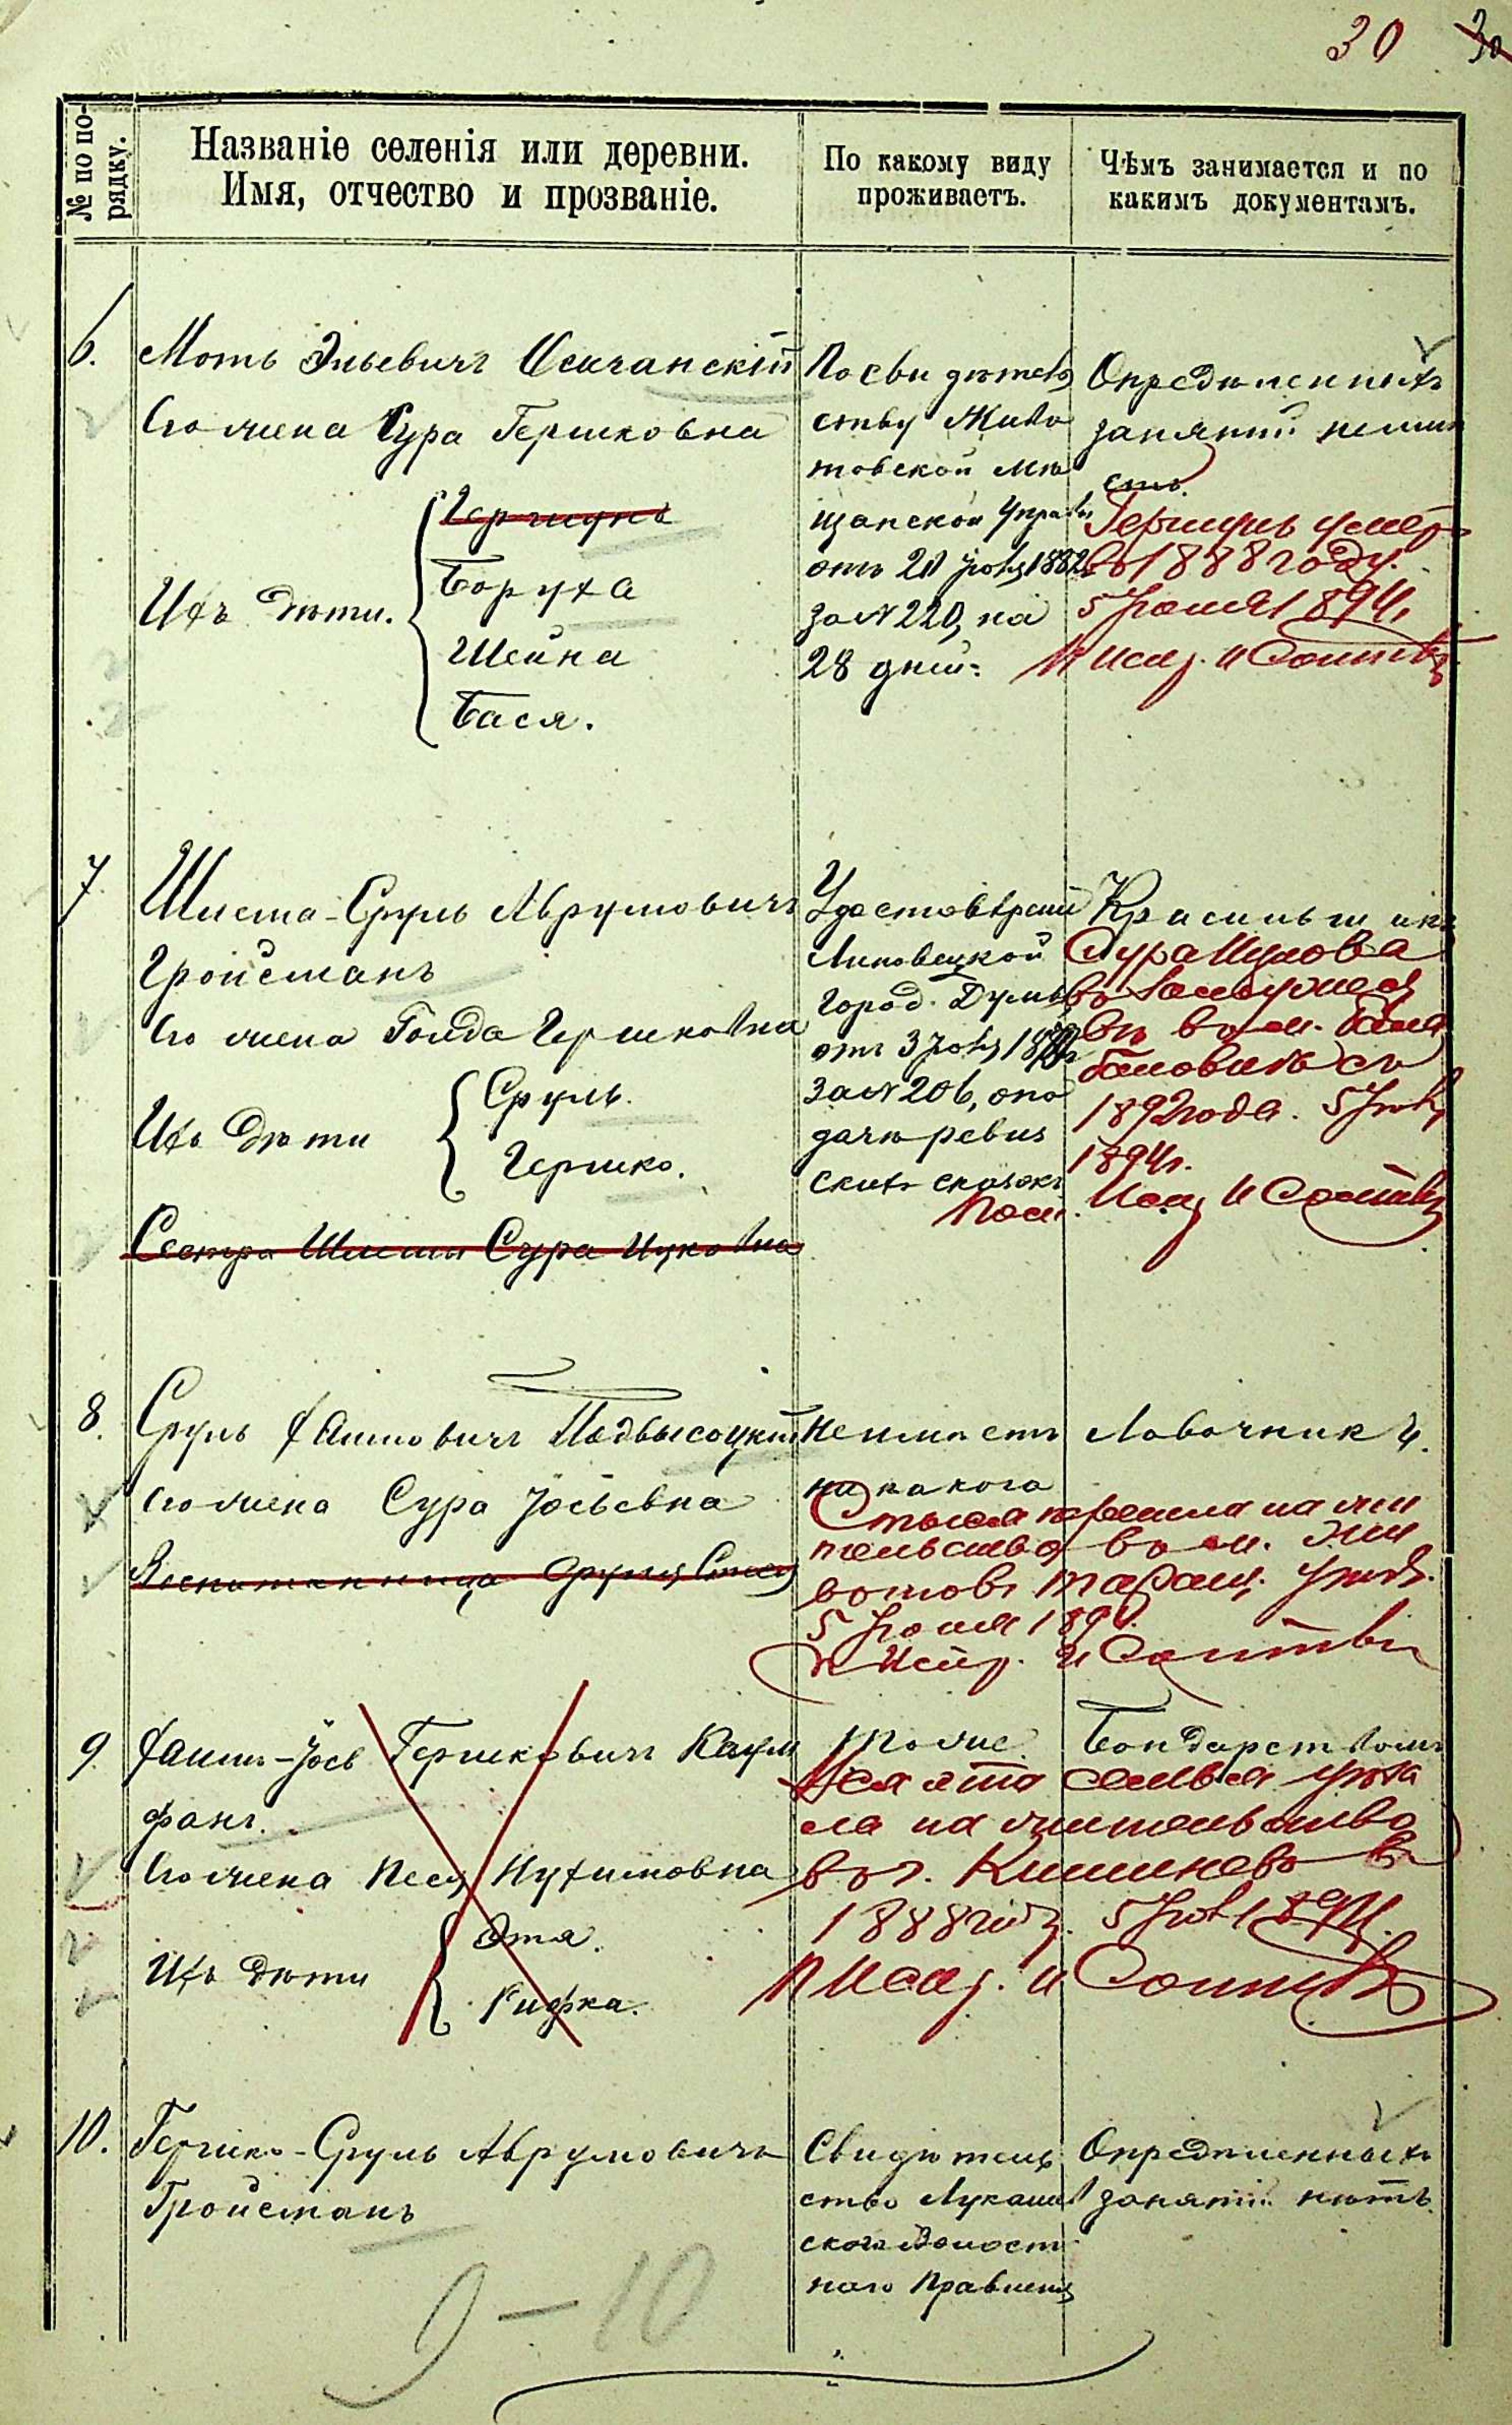 30 30
№ по по-
рядку.
Названіе селенія или деревни.
Имя, отчество и прозваніе.
По какому виду
проживаетъ.
Чѣмъ занимается и по
какимъ документамъ.
6.
Моть Эльевичъ Осичанскій
Его жена Сура Гершковна
Ихъ дѣти.
Гершунъ
Боруха
Шейна
Бася.
По свидѣтель
ству Живо
товской Мѣ
щанской Управы
отъ 21 Іюня 1882
за № 220, на
28 дней.
Опредѣленныхъ
занятій неимѣ
етъ.
Гершунъ умеръ
въ 1888 году.
5 Іюня 1894
П Испр. И
7.
Шлема-Сруль Аврумовичъ
Гройсманъ
Его жена Голда Гершковна
Ихъ дѣти
Сруль.
Гершко.
Сестра Шлемы Сура Ицковна
Удостовѣреніе
Липовецкой
Город. Думы
отъ 3 Іюня
за № 206, опо
дачѣ ревиз
скихъ сказокъ
Красильщикъ
Сура Ицкова
въ замужествѣ
въ м.
съ
1892 года. 5 Іюня
1894 г.
Пом. Испр И
8.
Сруль Фаимовичъ Подвысоцкій
Его жена Сура Іосьевна
Воспитанница Фрума Стыся
Неимѣетъ
никакого
Лавочникъ.
Стыся перешла на жи
тельство въ м. Жи
вотовъ Таращ. уѣзд.
5 Іюня 189
П Испр. И
9.
Фаимъ-Іось Гершковичъ Кауф
манъ.
Его жена Песя Нухимовна
Ихъ дѣти
Этя.
Рифка.
Тоже.
Бондарствомъ
Вся эта семья уѣха
ла на жительство
въ г. Кишиневъ въ
1888 году. 5 Іюня 1894
П Испр. И
10.
Гершко-Сруль Аврумовичъ
Гройсманъ
Свидѣтель
ство Лукаши
скаго Волост
наго Правленія
Опредѣленныхъ
занятій нѣтъ.
9-10